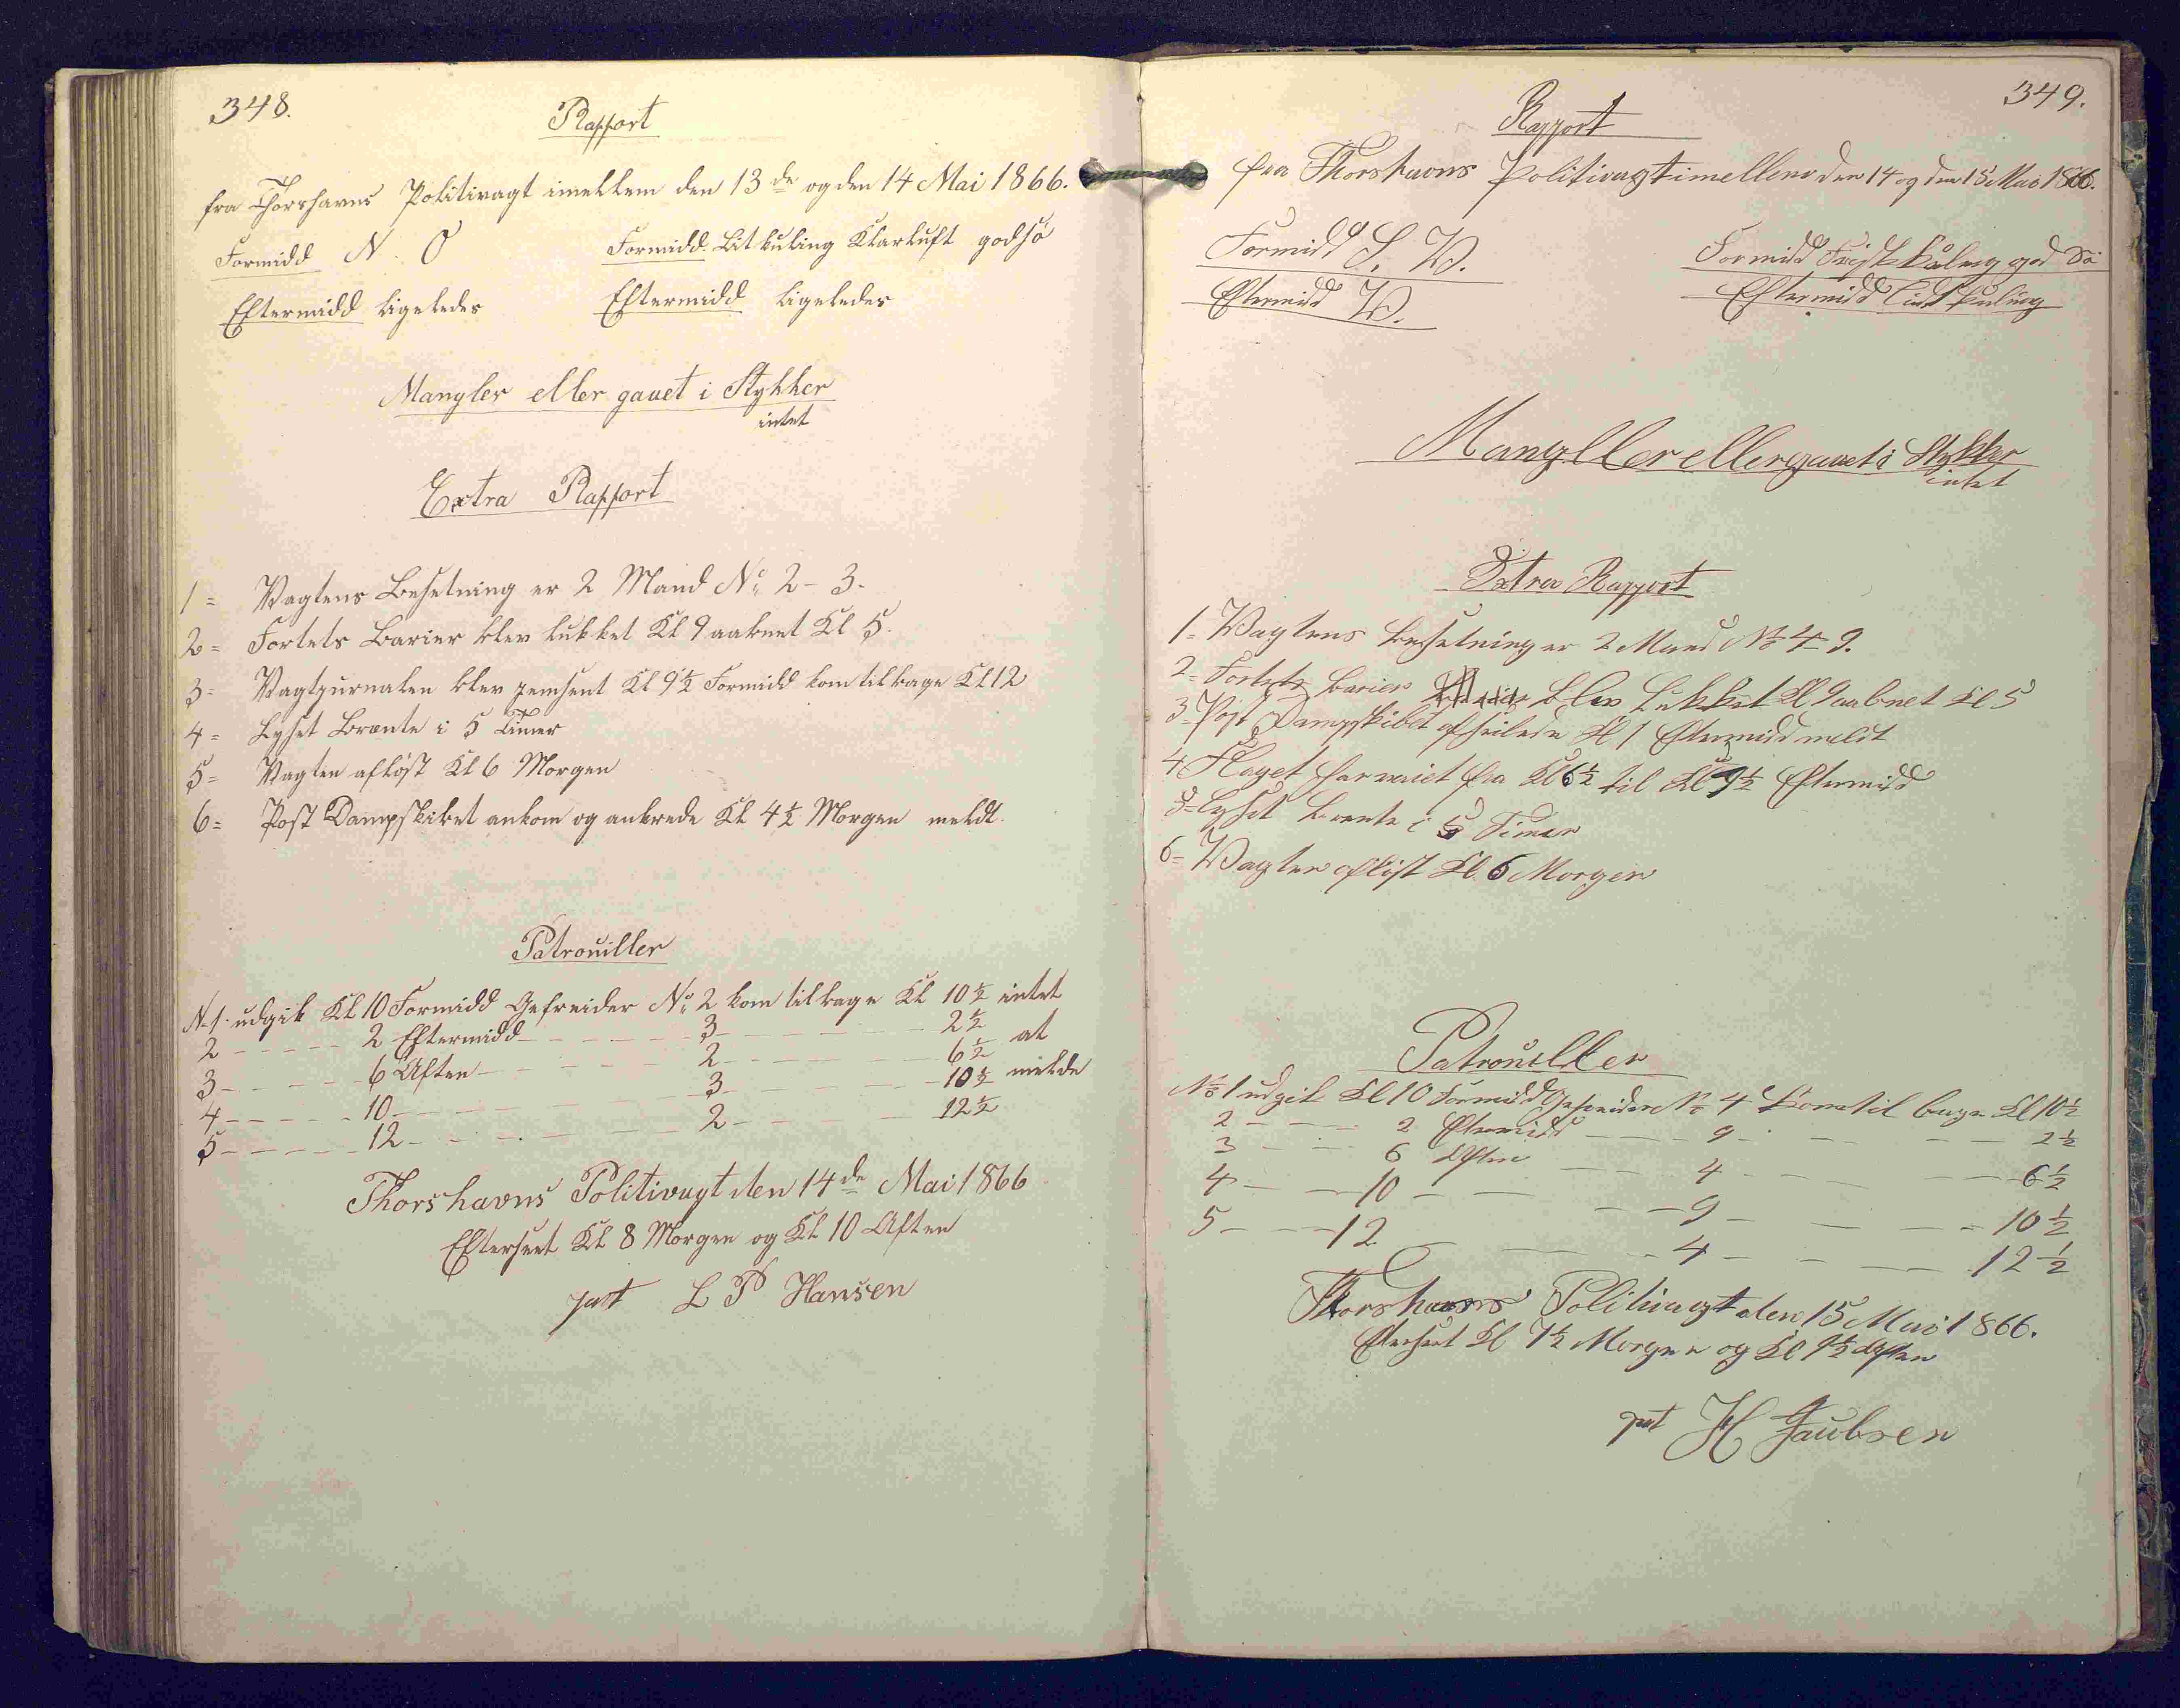 348.
Rapport
fra Thorshavns Politivagt imellem den 13de og den 14 Mai 1866.
Formidd N. O Formidd. Litkuling Klarluft godsø
Eftermidd ligeledes Eftermidd ligeledes
Mangler eller gaaet i Stykker
intet
Extra Rapport
1= Vagtens Besetning er 2 Mand No 2-3.
2= Fortets Barier blev lukket Kl 9 aabnet Kl 5.
3= Vagtjurnalen blev gemsent Kl 9½ Formidd kom tilbage Kl 12
4= Lyset Brænte i 5 Timer
5= Vagten afløst Kl 6 Morgen
6= Post Dampskibet ankom og ankrede Kl 4½ Morgen meldt.
Patrouiller
No 1. udgik Kl 10 Formidd Gefreider No 2 kom tilbage Kl 10½ intet
2 - - - - - 2 Eftermidd - - - - - 3 - - - - - 2½ at
3 - - - - - 6 Aften - - - - - 2 - - - - - 6½ melde
4 - - - - - 10 - - - - - 3 - - - - - 10½
5 - - - - - 12 - - - - - 2 - - - - - 12½
Thorshavns Politivagt den 14de Mai 1866
Efterseet Kl 8 Morgen og Kl 10 Aften
L P Hansen
349.
Rapport
fra Thorshavns Politivagt imellem den 14 og den 15 Mai 1866.
Formidd S. W. Formidd Friskkuling god Sö
Eftermidd W. Eftermidd Lindkuling
Mangller eller gaaet i Stykker
intet
Extra Rapport
1= Wagtens Besetning er 2 Mand No 4-9.
2= Fortets Barier blev Lukket Kl 9 aabnet Kl 5
3= Post Dampskibet afseilede Kl 1 Eftermidd meldt
4 Flaget har vaiet fra Kl 6½ til Kl 9½ Eftermidd
5= Lyset brente i 5 Timer
6= Wagten afløst Kl. 6 Morgen
Patrouiller
No 1 udgik Kl 10 Formidd Gefreider No 4 kom til bage Kl 10½
2 - - - - 2 Eftermidd - - - 9 - - - - 2½
3 - - - 6 Aften - - - 4 - - - - 6½
4 - - - 10 - - - - 9 - - - - 10½
5 - - - 12 - - - - 4 - - - - 12½
Thorshavns Politivagt den 15 Mai 1866.
Efterseet Kl 7½ Morgen og Kl 9½ Aften